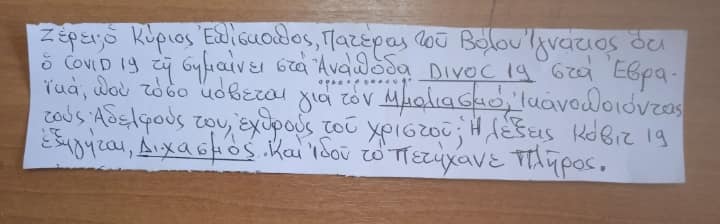 Ξέρει; ὁ Κύριος Ἐπίσκοπος, Πατέρας τοῦ Βόλου Ἰγνάτιος ὅτι
ὁ COVID 19 τῆ σημαίνει στά Ἀνάποδα DIVOC 19 στά Ἑβρα-
ϊκά, πού τόσο κόβεται γιά τόν Μπολιασμό, Ἱκανοποιόντας
τούς Ἀδελφούς του, ἐχθρούς τοῦ χριστοῦ; Ἡ λέξεις Κόβιτ 19
ἐξηγῆται, Διχασμός. Καί Ἰδοῦ τό Πετύχανε Πλῆρος.